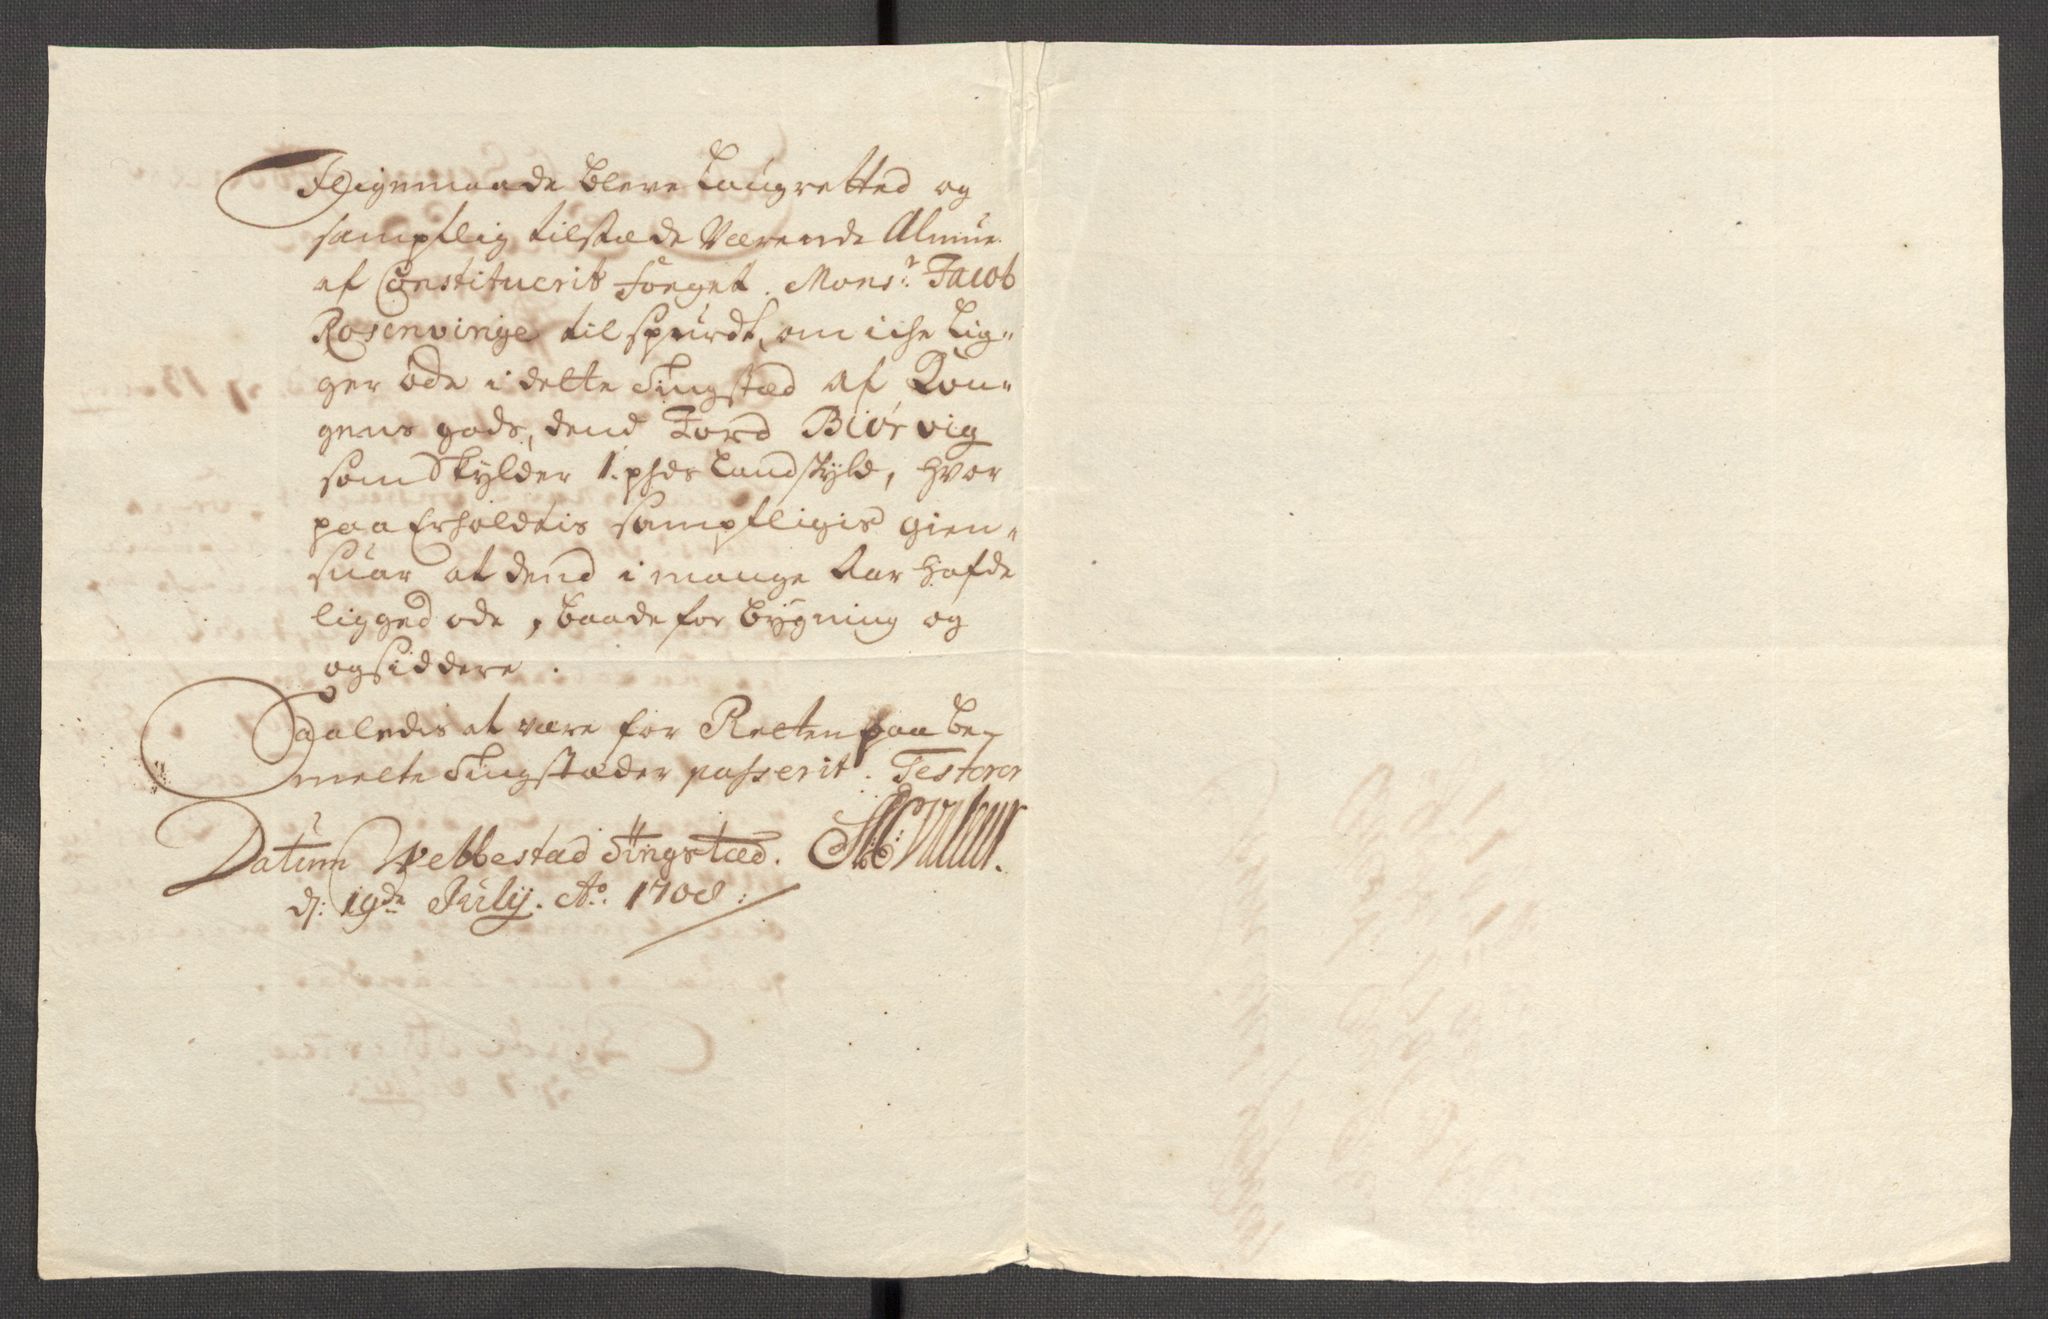 I Ligemaade bleve Laugretted og
samptlig tilstæde Værende Almue
af Constituerit foeget. Monsr: Jacob
Rosenvinge til spurdt, om iche Lig-
ger øde i dette Tingstæd af Kon-
gens gods, dend Jord Biørvig
som Skylder 1. pds Landskyld, hvor
paa Erholdtis samptligis gien-
suar at dend i mange Aar hafde
ligged øde, baade for bygning og
opsiddere.
Saaledis at være for Retten paa be-
melte Tingstæder passerit. Testerer
Datum Vebbestad Tingstæd.
d: 19de July. Ao. 1708: